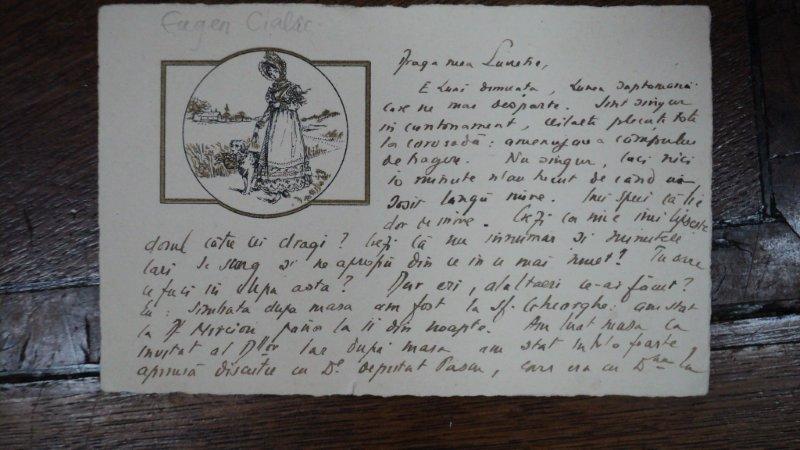 Eugen
Draga mea Lunetie,
E Luni dimineata, Lunea saptamanii
care ne mai desparte. Sint singur
in cantonament, ceilalti plecati toti
la corvoadă: amenajarea câmpului
de tragere. Nu singur, caci nici
10 minute n'au trecut de când
sosit lângă mine. Imi spui că ti-e
dor de mine. Crezi ca mie imi lipseste
dorul catre cei dragi? Crezi că nu innumar si minutele
cari se scurg si ne apropiu din ce in ce mai incet? Tu oare
ce faci in clipa asta? Dar eri, alaltaeri ce-ai făcut?
Eu: Simbata dupa masa am fost la Sf. Gheorghe: am stat
la Dl Mircion, pana la 11 din noapte. Am luat masa ca
invitat al Dlor iar după masa am stat intr'o foarte
aprinsă discutie cu Dl Deputat Pascu, care era cu Dna